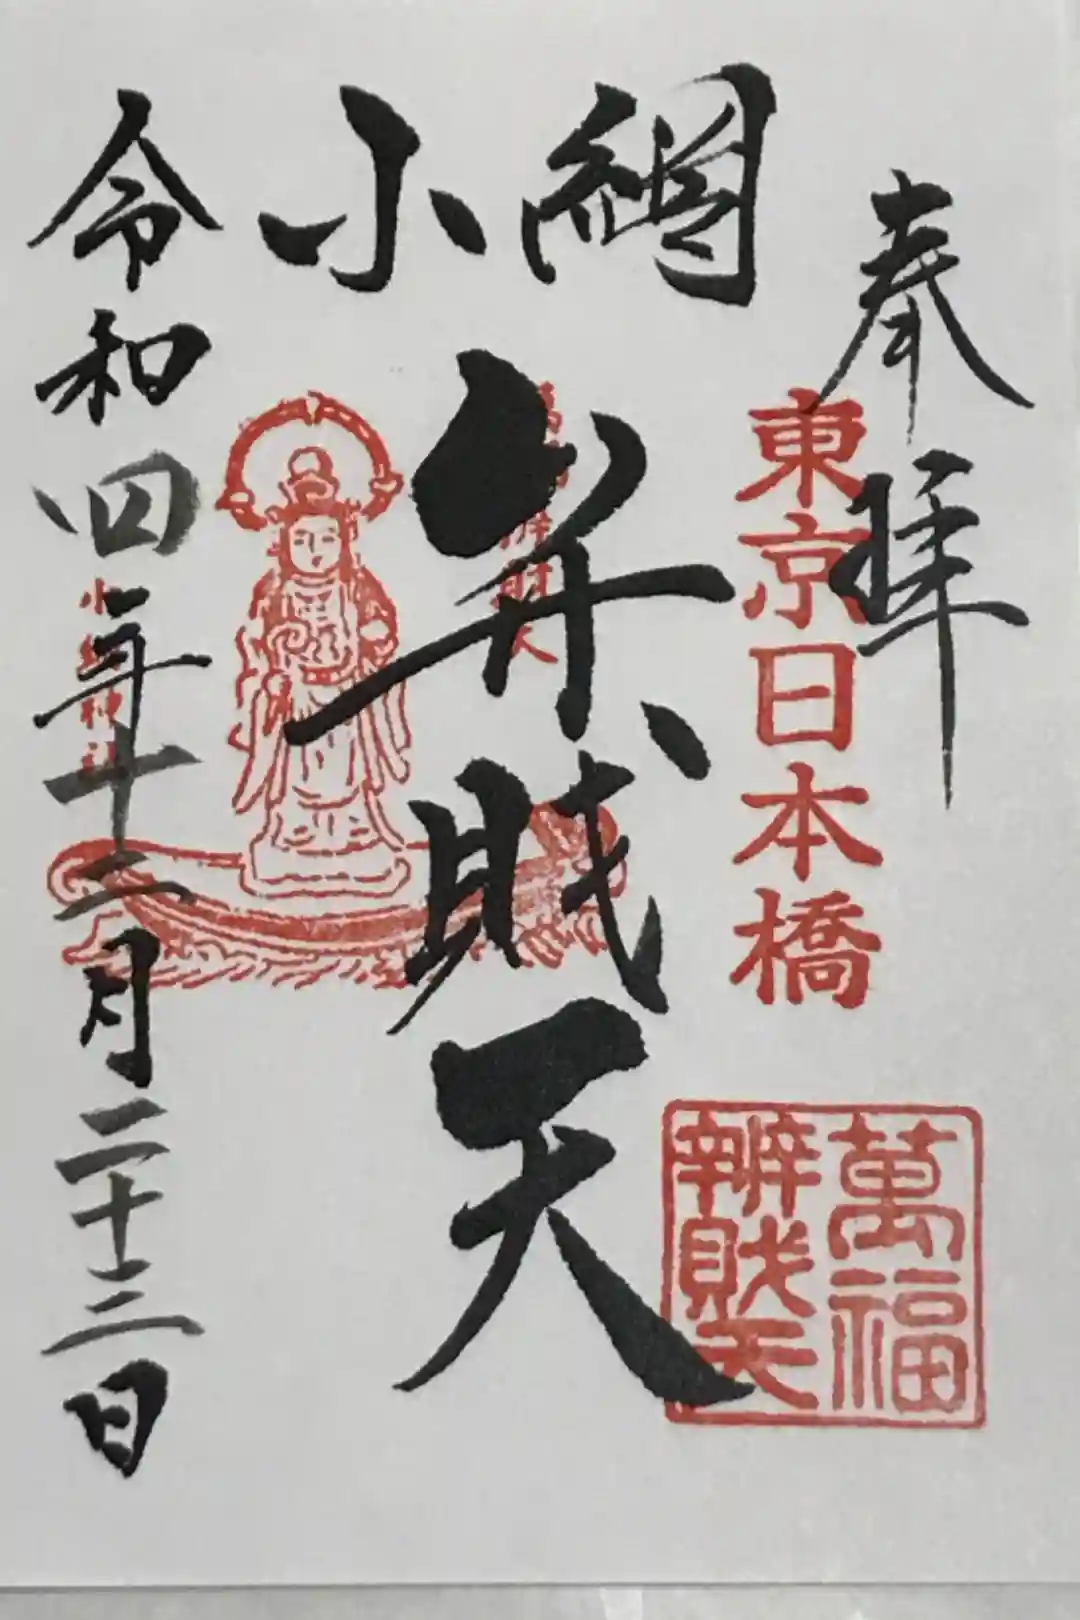 奉拝
東京日本橋
萬福
辨財天
小網
弁財天
萬福辨財天
令和四年十二月二十二日
小網神社